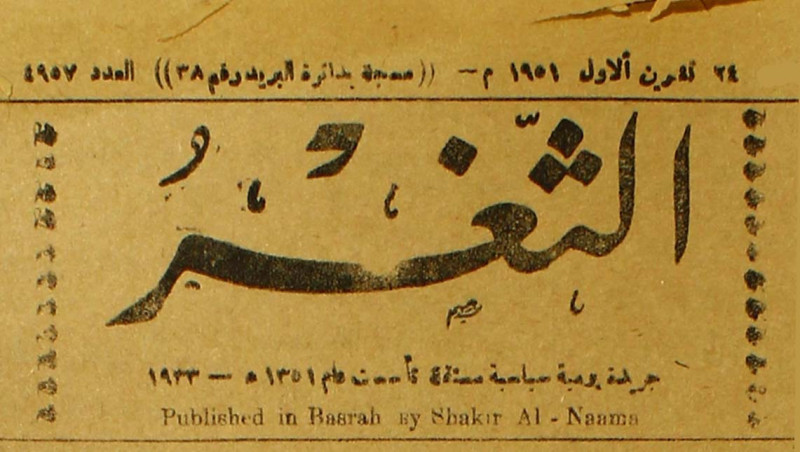 ٢٤ تشرين ألاول ١٩٥١ م — ((مسجلة بدائرة البريد رقم ٣٨)) العدد ٤٩٥٧
الثَّغْرُ
جريدة يومية سياسية مستقلة تأسست عام ١٣٥١ ه — ١٩٣٣
Published in Basrah By Shakir Al - Naama